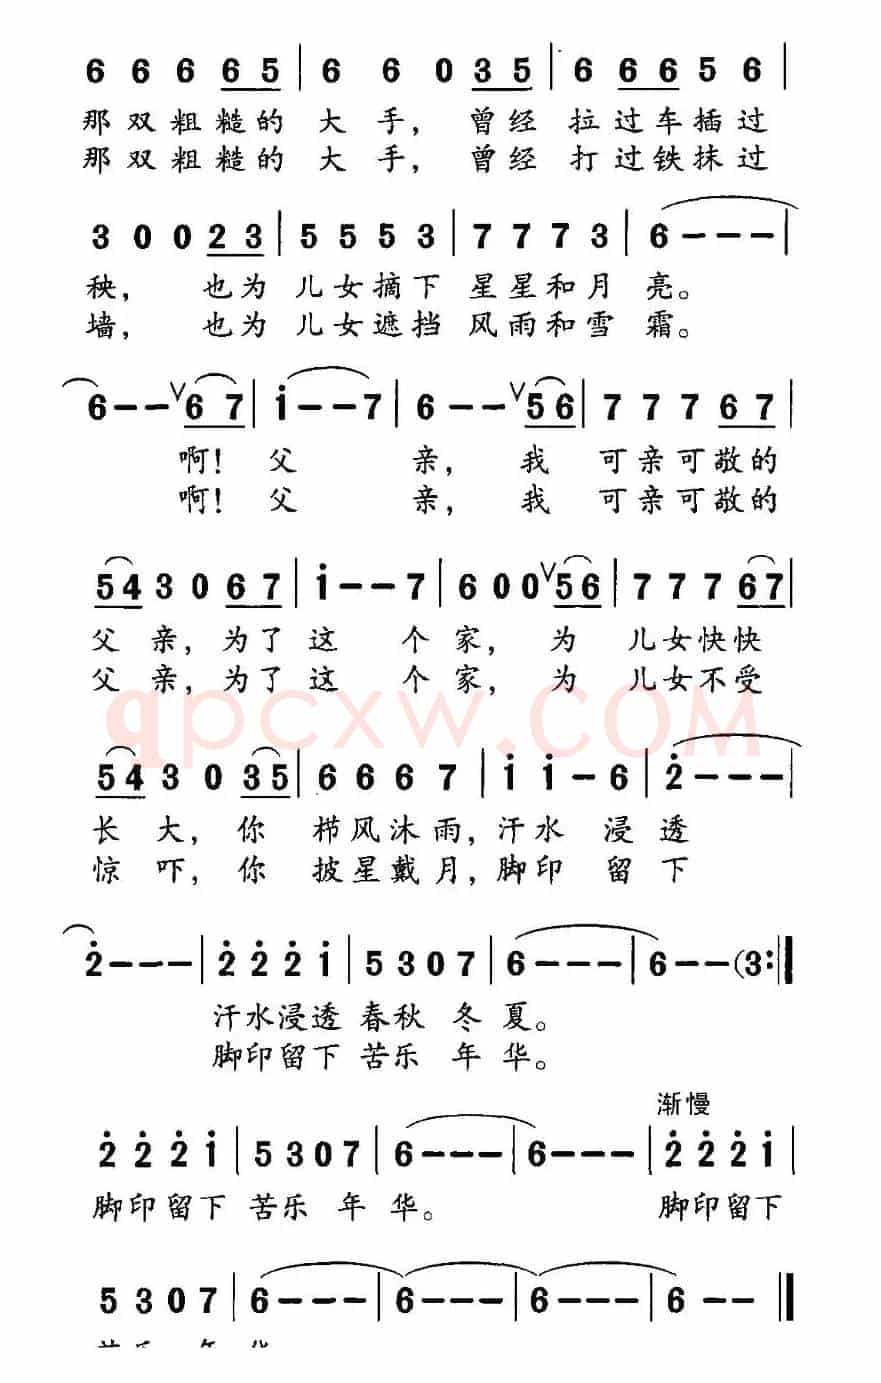 6 6 6 6 5 | 6 6 0 3 5 | 6 6 6 5 6 |
那双粗糙的 大手， 曾经 拉过车插过
那双粗糙的 大手， 曾经 打过铁抹过
3 0 0 2 3 | 5 5 5 3 | 7 7 7 3 | 6 - - - |
秧， 也为 儿女摘下 星星和月 亮。
墙， 也为 儿女遮挡 风雨和雪 霜。
6 - - ∨ 6 7 | i - - 7 | 6 - - ∨ 5 6 | 7 7 7 6 7 |
啊！父 亲， 我 可亲可敬的
啊！父 亲， 我 可亲可敬的
5 4 3 0 6 7 | i - - 7 | 6 0 0 ∨ 5 6 | 7 7 7 6 7 |
父 亲，为了这 个 家， 为 儿女快快
父 亲，为了这 个 家， 为 儿女不受
qpcxw.COM
5 4 3 0 3 5 | 6 6 6 7 | i i - 6 | 2̇ - - - |
长 大，你 栉风沐雨，汗水 浸 透
惊 吓，你 披星戴月，脚印 留 下
2̇ - - - | 2̇ 2̇ 2̇ i | 5 3 0 7 | 6 - - - | 6 - - (3 :|
汗水浸透 春秋 冬 夏。
脚印留下 苦乐 年 华。
渐慢
2̇ 2̇ 2̇ i | 5 3 0 7 | 6 - - - | 6 - - - | 2̇ 2̇ 2̇ i |
脚印留下 苦乐 年 华。 脚印留下
5 3 0 7 | 6 - - - | 6 - - - | 6 - - - | 6 - - ‖